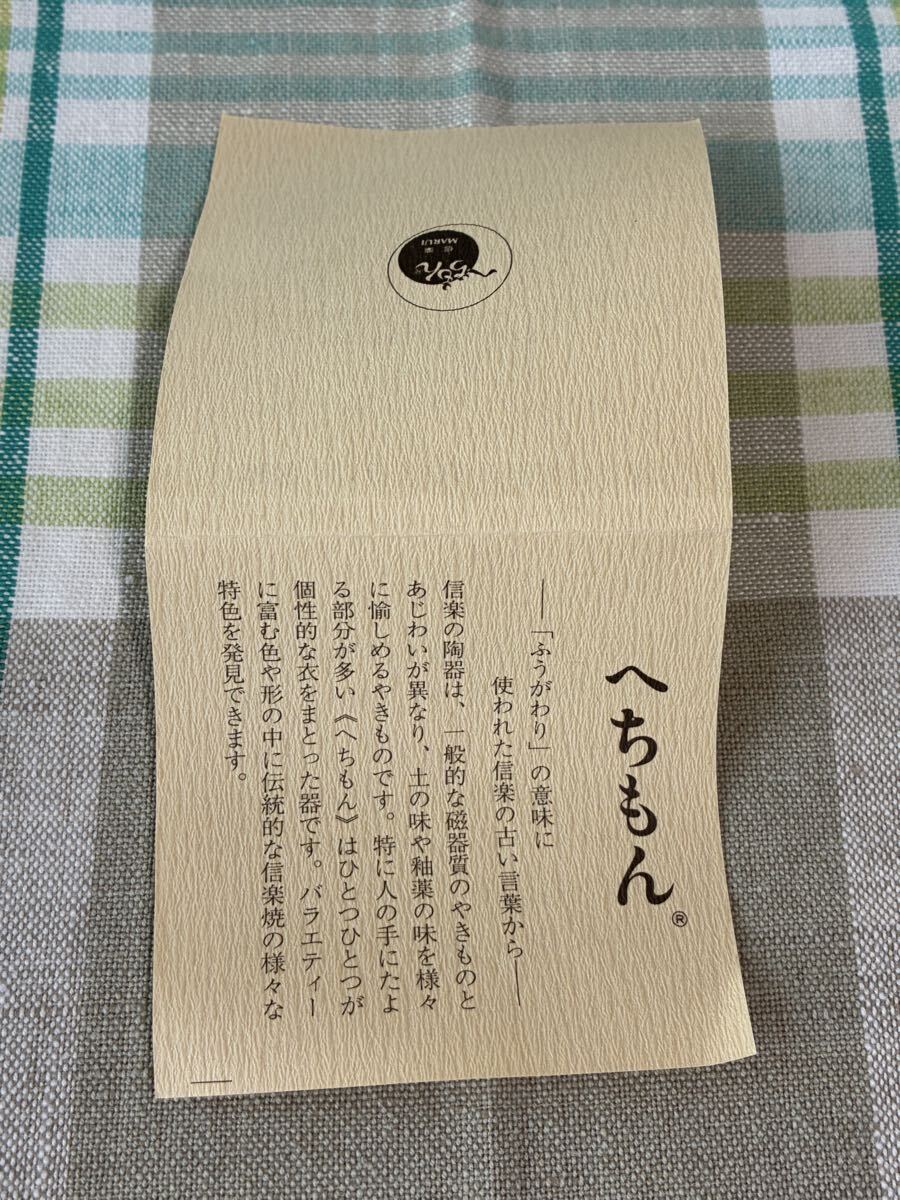 へちもん®
――「ふうがわり」の意味に
使われた信楽の古い言葉から――
信楽の陶器は、一般的な磁器質のやきものと
あじわいが異なり、土の味や釉薬の味を様々
に愉しめるやきものです。特に人の手にたよ
る部分が多い《へちもん》はひとつひとつが
個性的な衣をまとった器です。バラエティー
に富む色や形の中に伝統的な信楽焼の様々な
特色を発見できます。
へちもん
信楽
MARUI